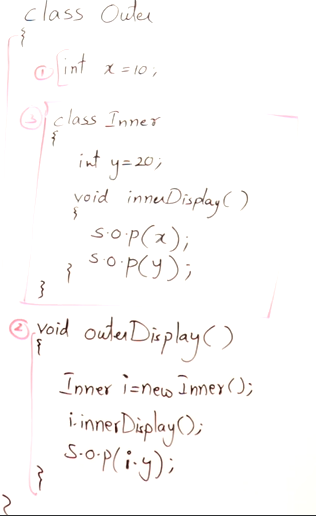 class Outer
{
① int x=10;
③ class Inner
{
int y=20;
void innerDisplay()
{
S.o.p(x);
S.o.p(y);
}
}
② void outerDisplay()
{
Inner i=new Inner();
i.innerDisplay();
S.o.p(i.y);
}
}